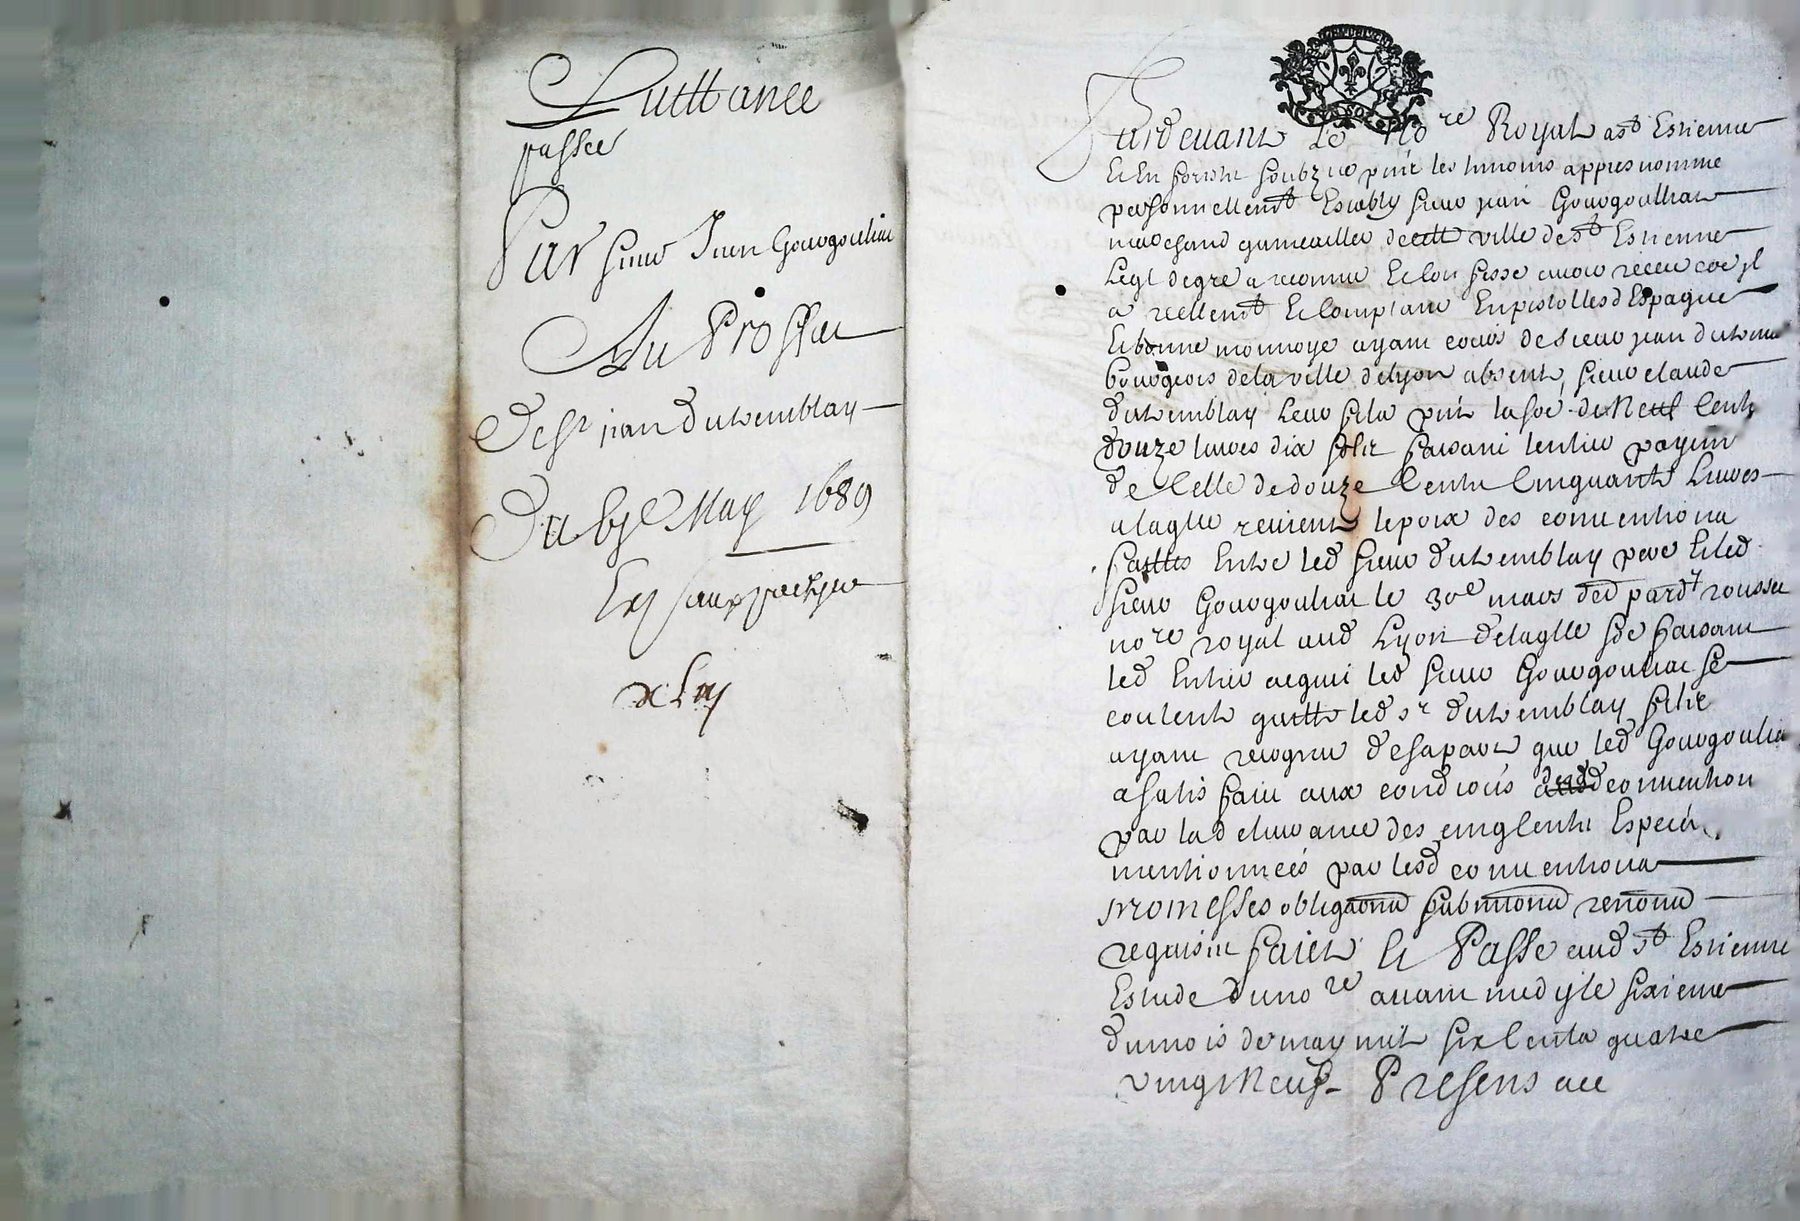 Quittance
passée
Par sieur Jean Gourgouliat
Au Proffict
de sr jean dutremblay
Du 6e May 1689
Pardevant le no.re Royal a st Estienne
et en forestz soubz.ne pnt les tesmoins appres nommé
personnellemt Estably sieur jean Gourgoulliat
marchand quincailler de cette ville de st Estienne
Leql de gré a reconnu et confesse avoir receu coe jl
a reellemt et comptant En pistolles d Espagne
et bonne monnoye ayant cours de sieur jean dutrembl
bourgeois de la ville de lyon absent, sieur claude
dutremblay son filz pnt la soe de sept cents
douze livres dix solz faisant l entier payemt
de celle de douze cents cinquante livres
a laqlle revient le prix des conventions
faittes Entre led sieur dutremblay pere et led
sieur Gourgouliat le 30e mars ded pardt rousset
no.re royal aud Lyon de laqlle soe faisant
led Entier acquit led sieur Gourgouliat se
contente quitte led sr dutremblay filz
ayant recognu de sa part que led Gourgoulia
a satisfait aux condions de convention
par la delivrance des cinq cents Especes
mentionnées par lesd conventions
promesses obligaons submions renons
requises faict et Passé aud st Estienne
Estude du no.re avant midy le sixieme
du mois de may mil six cents quatre
vingt neuf Presens a ce